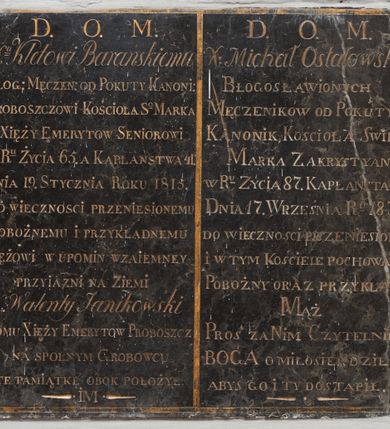 D. O. M.
Kłdowi Baranskiemu
ŁOG: MĘCZEN: OD POKUTY KANONI:
ROBOSZCZOWI KOSCIOŁA So MARKA
XIĘŻY EMERYTOW SENIOROWI
Ru ŻYCIA 65, A KAPŁANSTWA 41.
NIA 19. STYCZNIA ROKU 1815.
O WIECZNOSCI PRZENIESIONEMU
OBOŻNEMU I PRZYKŁADNEMU
ĘŻOWI W UPOMIN WZAIEMNEY
PRZYIAŻNI NA ZIEMI
Walenty Janikowski
OMU XIĘŻY EMERYTOW PROBOSZCZ
NA SPOLNYM GROBOWCU
TE PAMIĄTKĘ OBOK POŁOŻYŁ.
IM
D. O. M.
X. Michał Ostałowsk
BŁOGOSŁAWIONYCH
MĘCZENIKOW OD POKUT
KANONIK, KOSCIOŁA SWIE
MARKA ZAKRYSTYAN
W Ru ŻYCIA 87. KAPŁANST
DNIA 17. WRZEŚNIA Ru 18
DO WIECZNOSCI PRZENIESIO
I W TYM KOSCIELE POCHOWA
POBOŻNY ORAZ PRZYKŁA
MĄŻ
PROS ZA NIM CZYTELNI
BOGA O MIŁOSIERDZIE
ABYS GO I TY DOSTĄPIŁ.